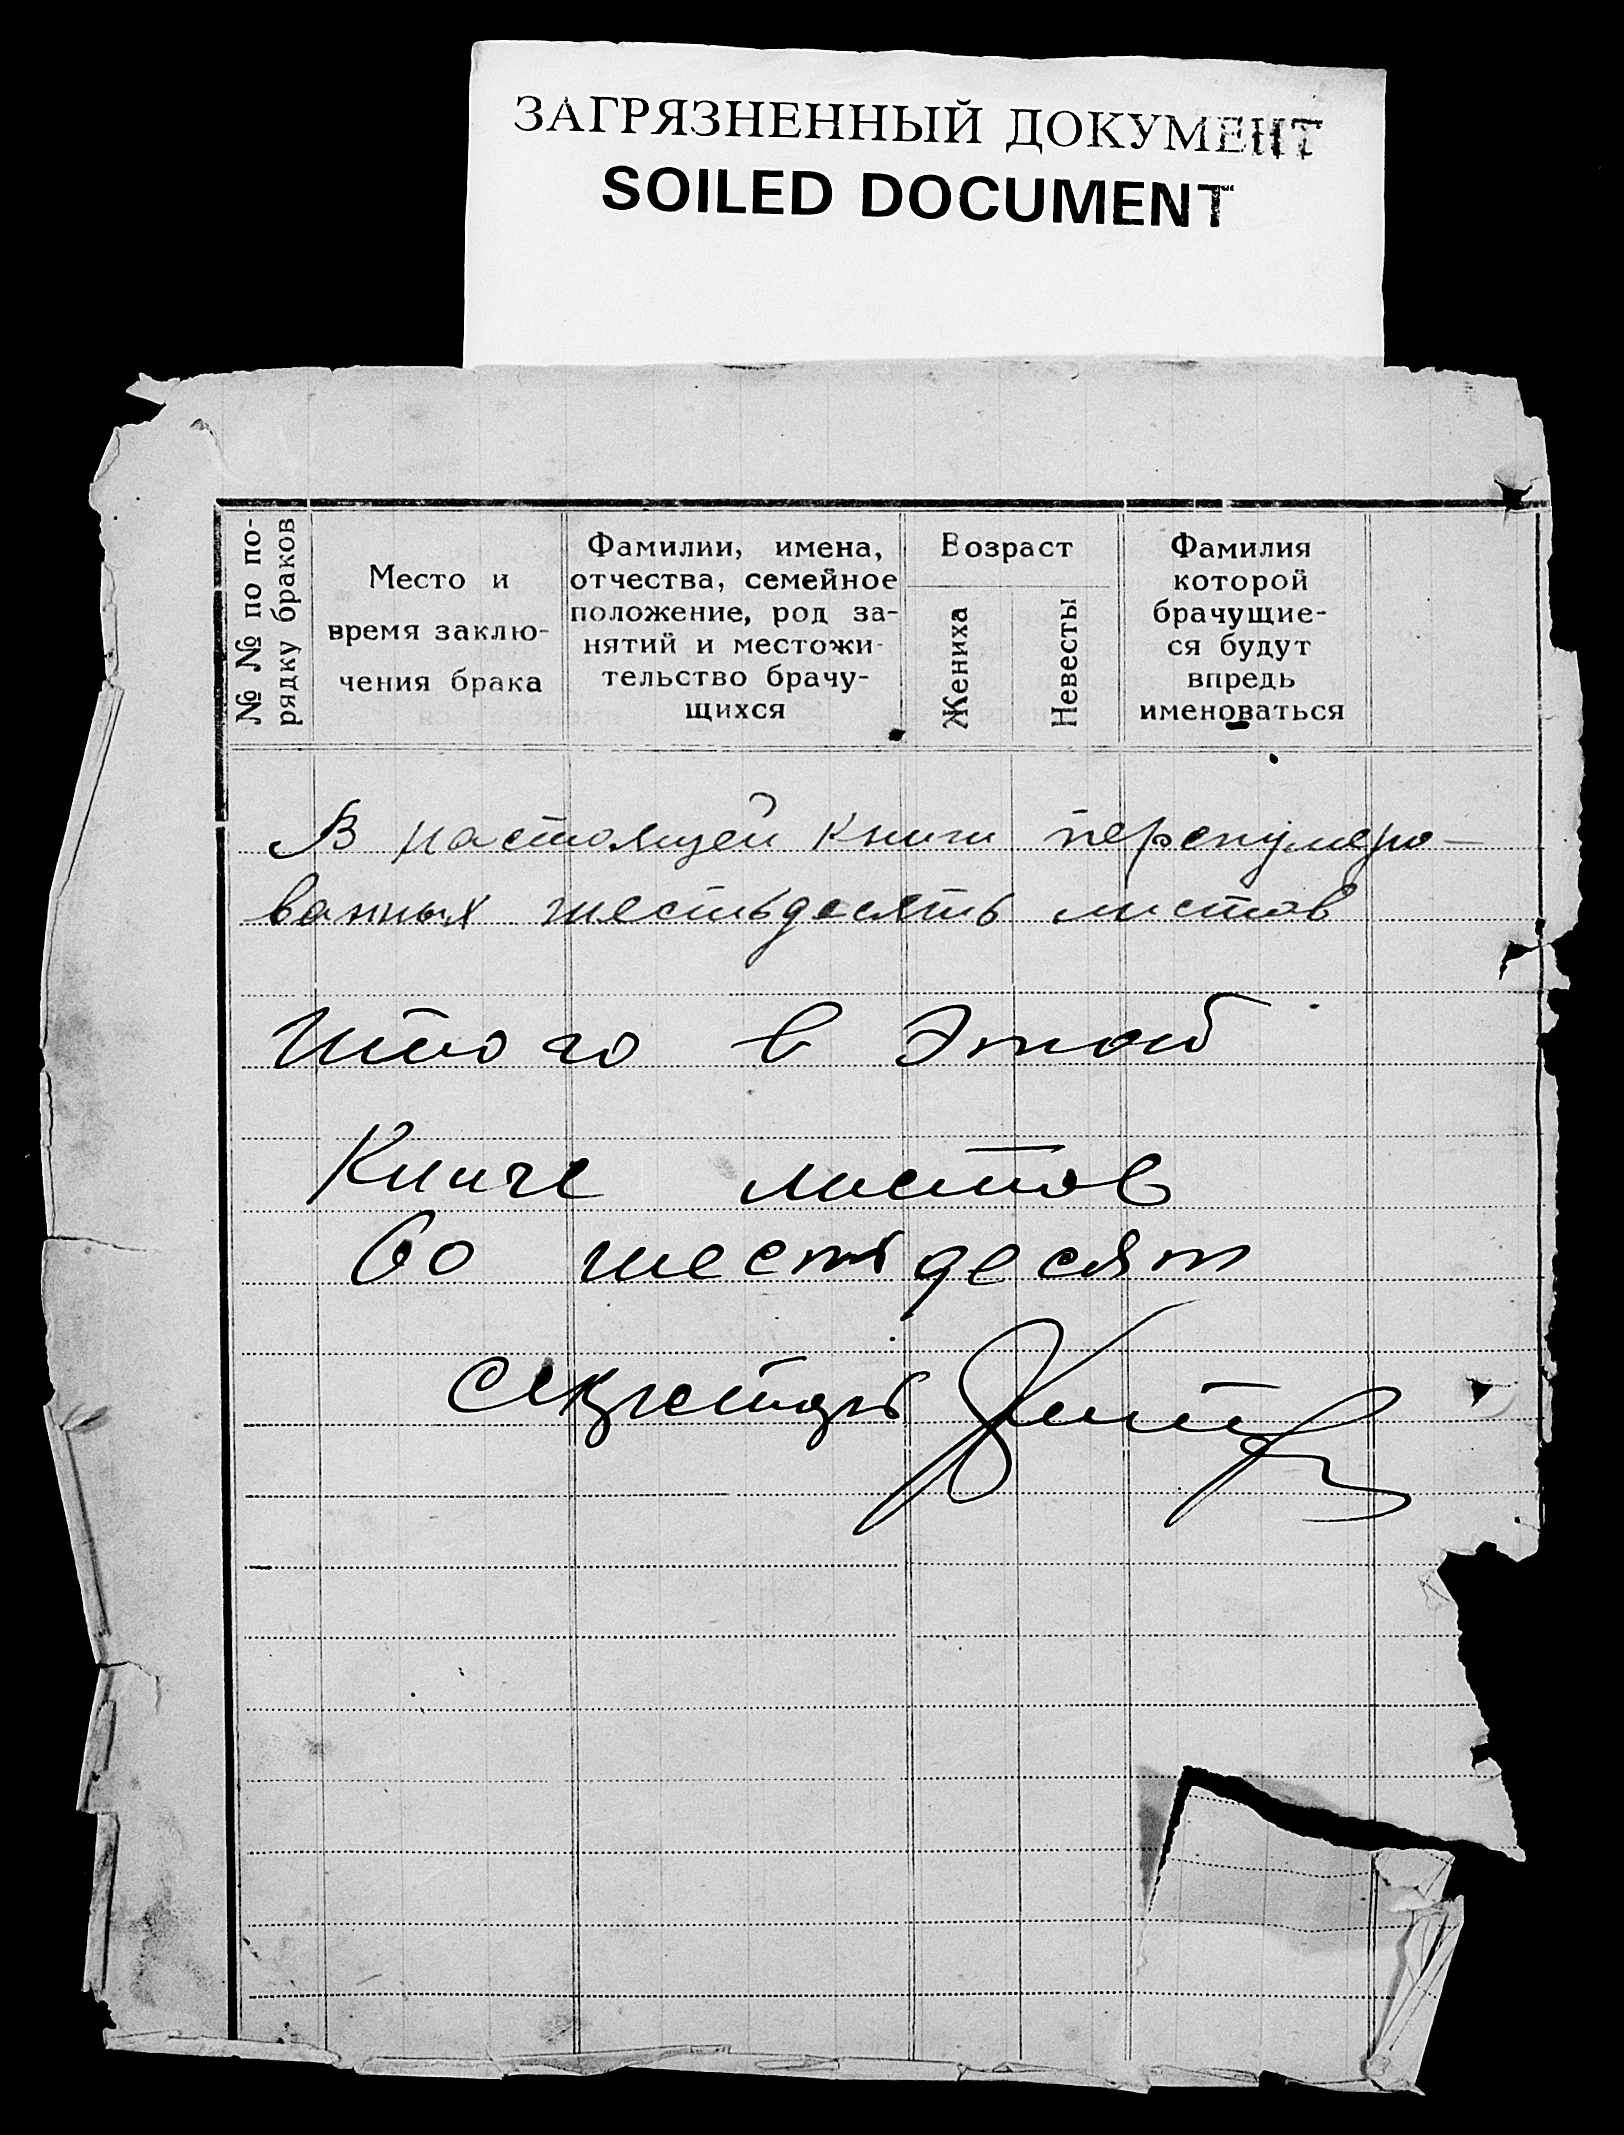 ЗАГРЯЗНЕННЫЙ ДОКУМЕНТ
SOILED DOCUMENT
№ № по по-
рядку браков
Место и
время заклю-
чения брака
Фамилии, имена,
отчества, семейное
положение, род за-
нятий и местожи-
тельство брачу-
щихся
Возраст
Жениха
Невесты
Фамилия
которой
брачущие-
ся будут
впредь
именоваться
В настоящей книги перенумеро-
ванных шестьдесять листов
Итого в этой
Книге листов
60 шестьдесят
секретарь